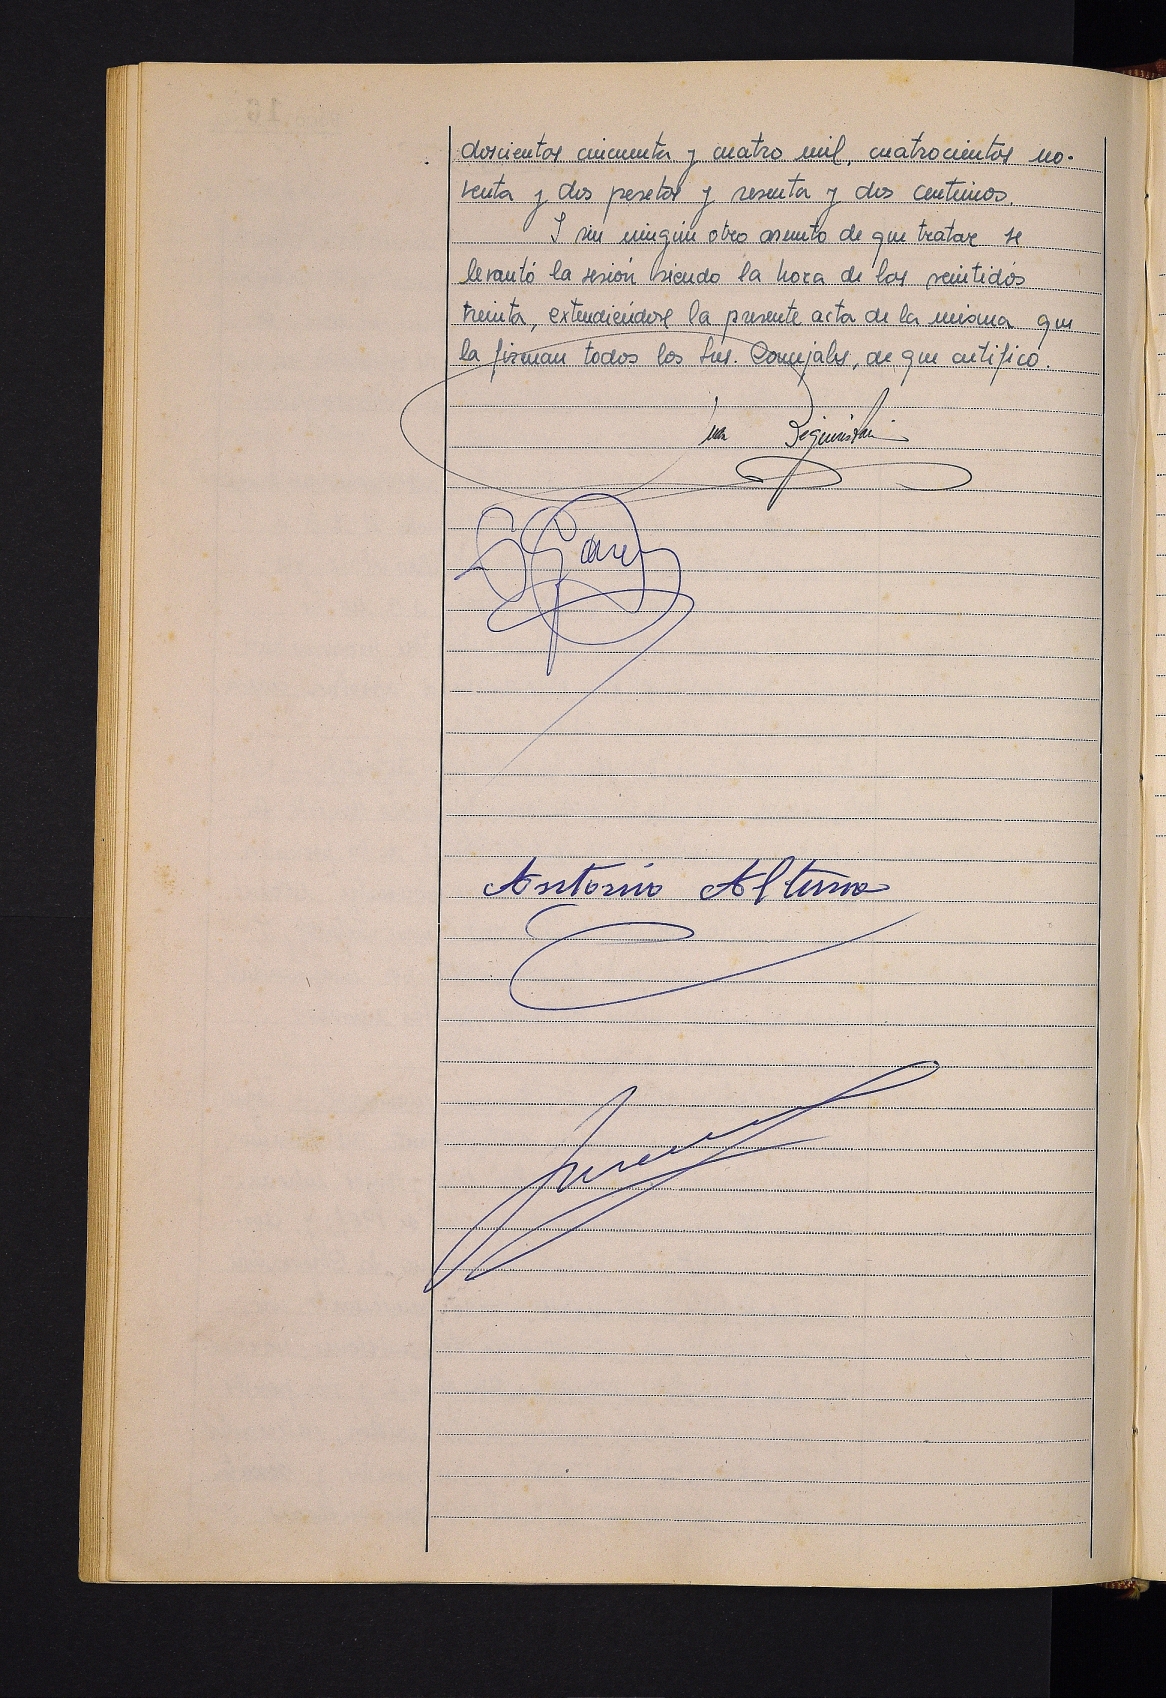 doscientos cincuenta y cuatro mil, cuatrocientos no-
venta y dos pesetas y sesenta y dos centimos.
Y sin ningún otro asunto de que tratar se
levantó la sesión siendo la hora de las veintidós
treinta, extendiéndose la presente acta de la misma que
la firman todos los Srs. Concejales, de que certifico.
Antonio Altuna